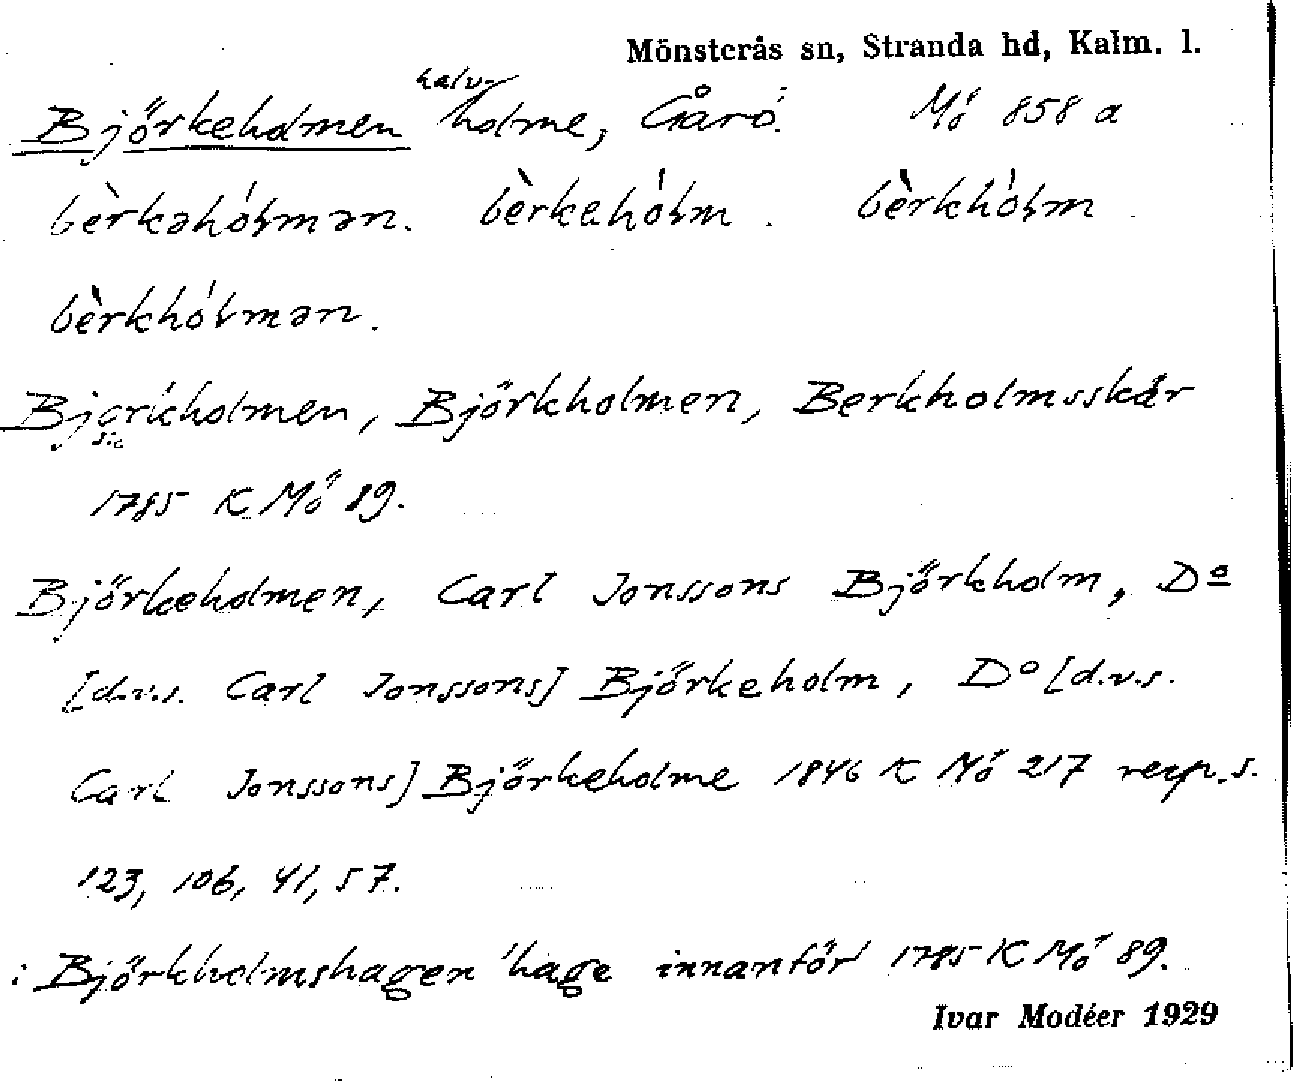 Mönsterås sn, Stranda hd, Kalm. l.
halv-
Björkeholmen holme, Gårö. Mö 858 a
bèrkəhóɫmən. bèrkəhóɫm. bèrkhóɫm
bèrkhóɫmən.
Bjorkholmen, Björkholmen, Berkholmsskär
sic
1785 K Mö 89.
Björkeholmen, Carl Jonssons Björkholm, Do
[d.v.s. Carl Jonssons] Björkeholm, Do [d.v.s.
Carl Jonssons] Björkeholme 1846 K Mö 217 resp. s.
123, 106, 41, 57.
: Björkholmshagen 'hage innanför' 1785 K Mö 89.
Ivar Modéer 1929